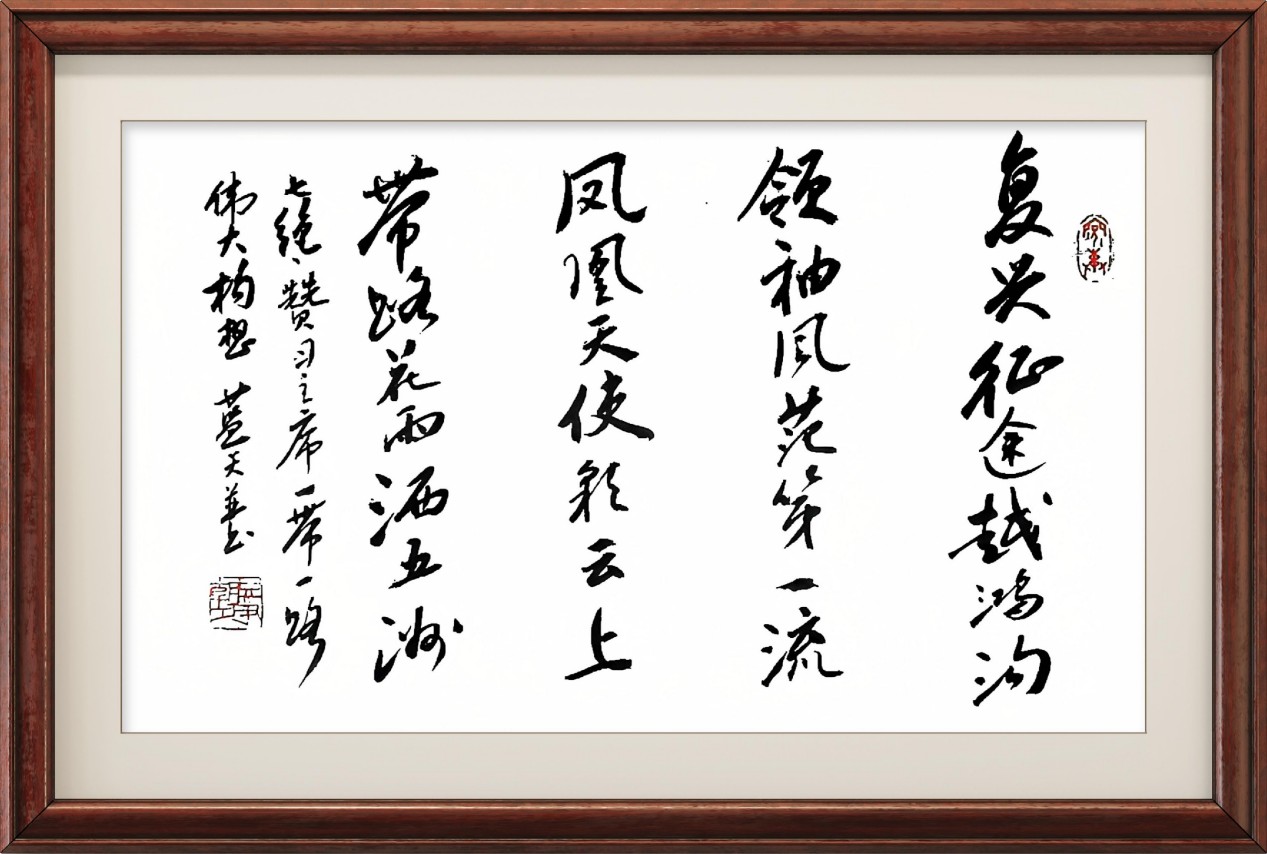 复兴征途越鸿沟
领袖风范第一流
凤凰天使彩云上
带路花雨洒五洲
七绝、赞习主席一带一路
伟大构想 蓝天并书